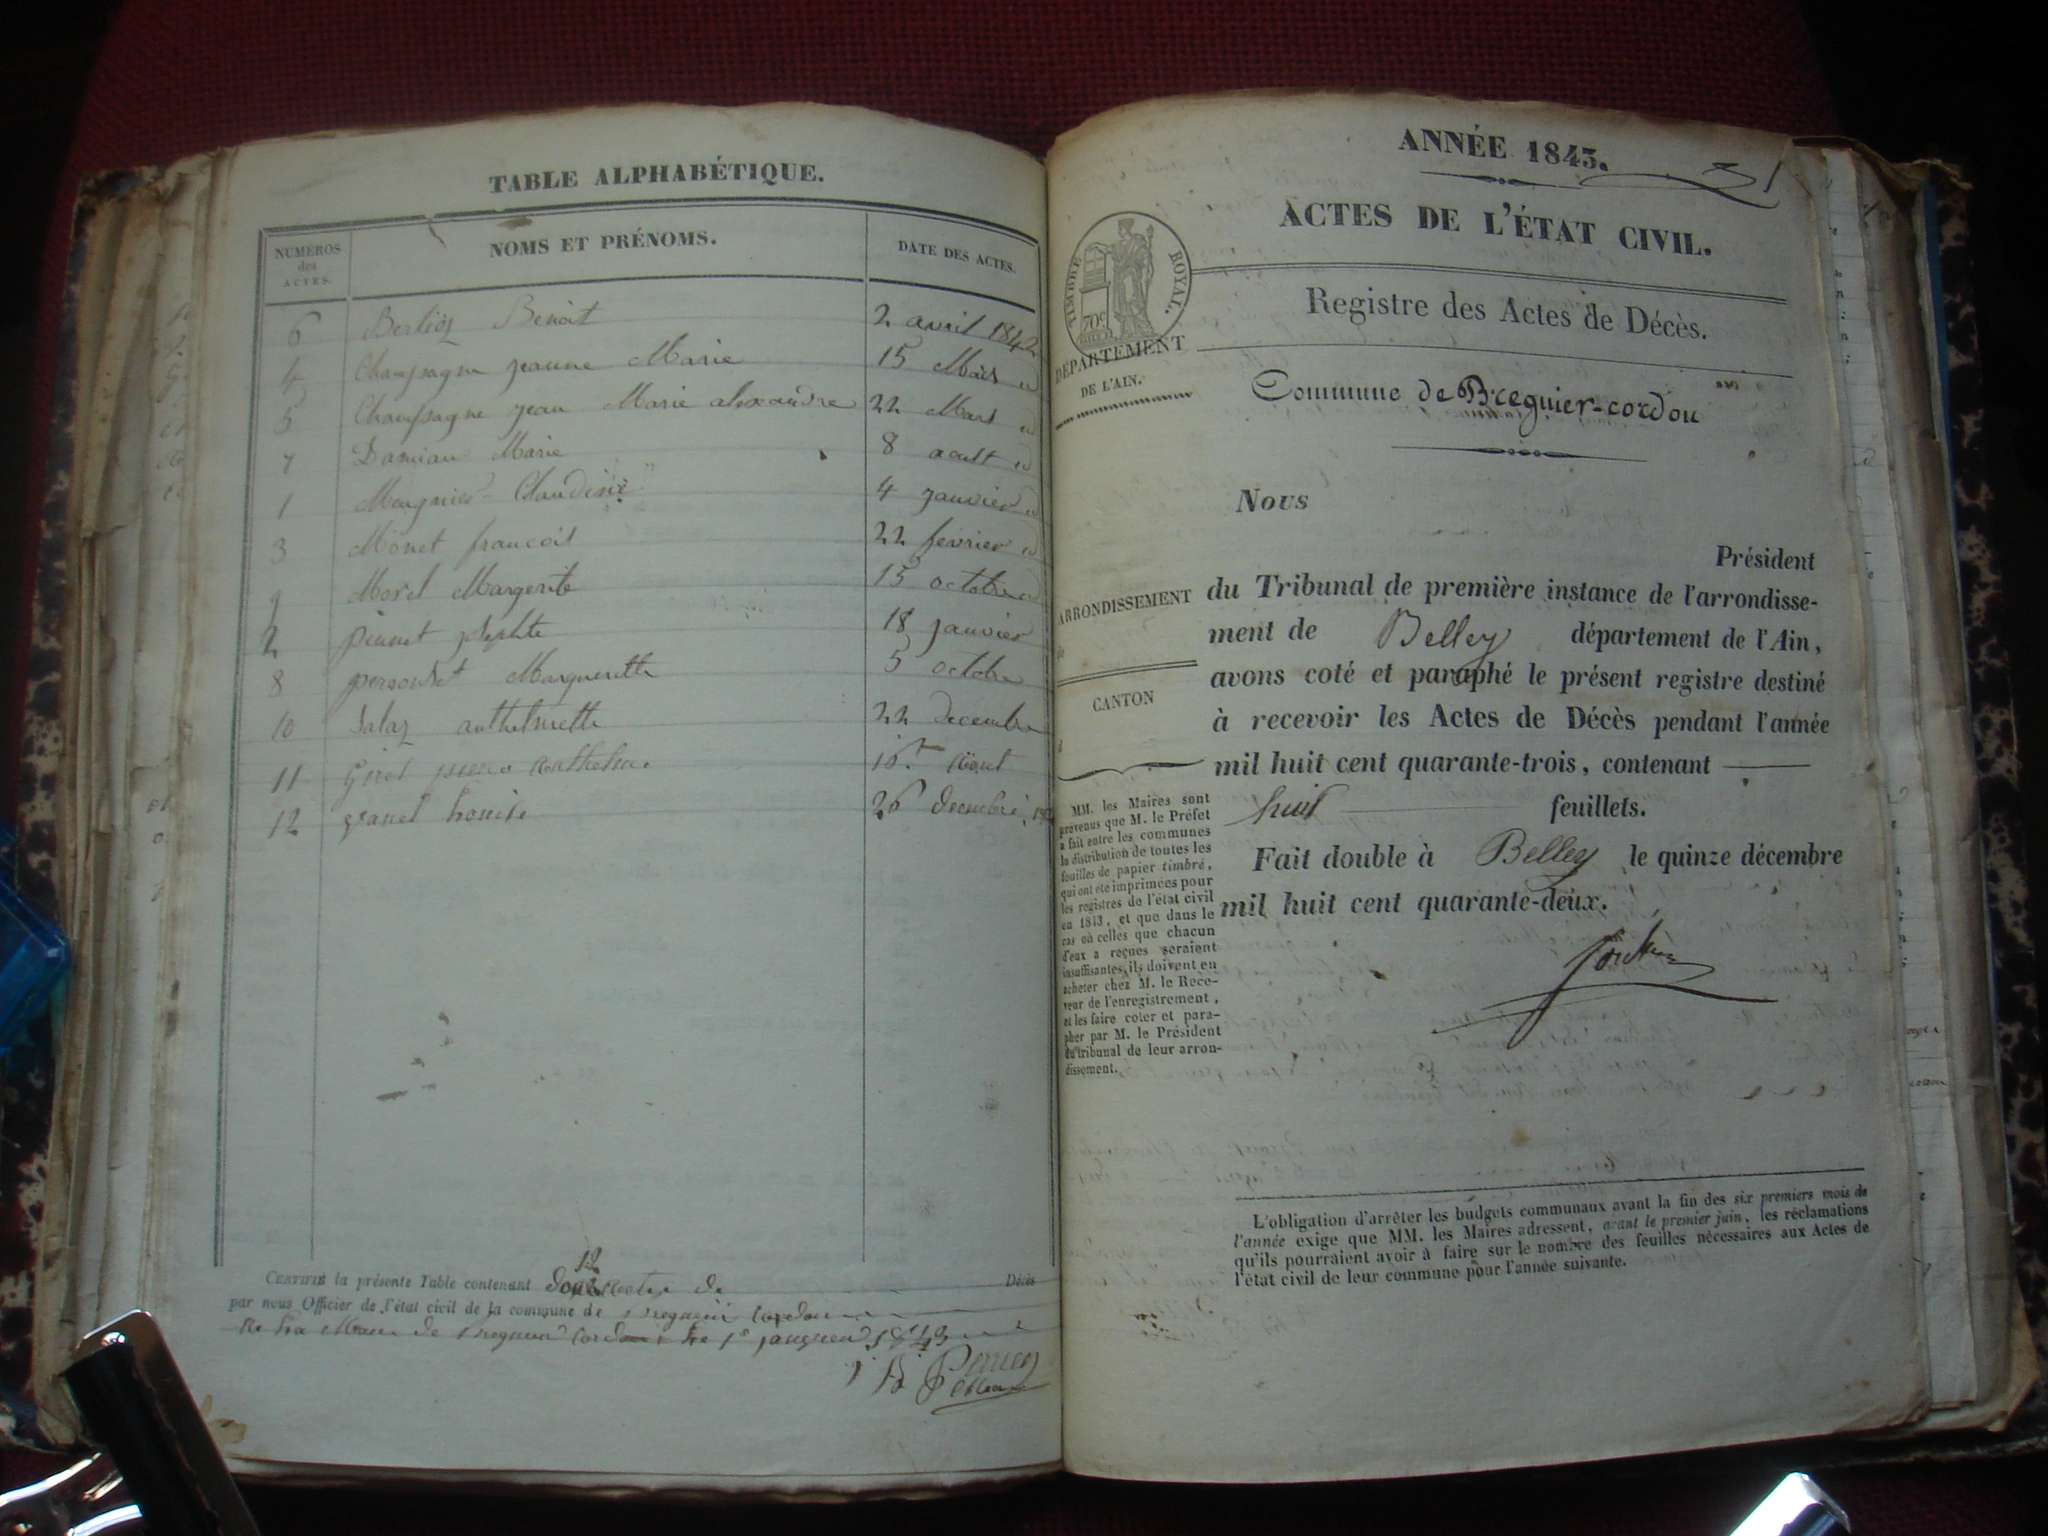 TABLE ALPHABÉTIQUE.
NUMÉROS des ACTES. NOMS ET PRÉNOMS. DATE DES ACTES.
6 Berlioz Benoit 2 avril 1842
4 Champagne jeanne Marie 15 Mars id
5 Champagne jean Marie alexandre 22 Mars id
7 Damian Marie 8 aoult id
1 Claudine 4 janvier id
3 Monet francois 22 fevrier id
9 Morel Margerite 15 octobre id
2 18 janvier
8 Margueritte 5 octobre
10 Salaz anthelmette 22 decembre
11
12 Louise 26 decembre
CERTIFIÉ la présente Table contenant 12 de Décès
par nous Officier de l'état civil de la commune de Bregnier Cordon
de Bregnier Cordon Le 1er janvier 1843
ANNÉE 1843.
ACTES DE L'ÉTAT CIVIL.
TIMBRE ROYAL.
70c
Registre des Actes de Décès.
DÉPARTEMENT
DE L'AIN.
Commune de Bregnier-cordon
Nous
Président
ARRONDISSEMENT
de
CANTON
d
du Tribunal de première instance de l'arrondisse-
ment de Belley département de l'Ain,
avons coté et paraphé le présent registre destiné
à recevoir les Actes de Décès pendant l'année
mil huit cent quarante-trois, contenant
huit feuillets.
Fait double à Belley le quinze décembre
mil huit cent quarante-deux.
MM. les Maires sont
prévenus que M. le Préfet
a fait entre les communes
la distribution de toutes les
feuilles de papier timbré,
qui ont été imprimées pour
les registres de l'état civil
en 1843, et que dans le
cas où celles que chacun
d'eux a reçues seraient
insuffisantes, ils doivent en
acheter chez M. le Rece-
veur de l'enregistrement,
et les faire coter et para-
pher par M. le Président
du tribunal de leur arron-
dissement.
L'obligation d'arrêter les budgets communaux avant la fin des six premiers mois de
l'année exige que MM. les Maires adressent, avant le premier juin, les réclamations
qu'ils pourraient avoir à faire sur le nombre des feuilles nécessaires aux Actes de
l'état civil de leur commune pour l'année suivante.